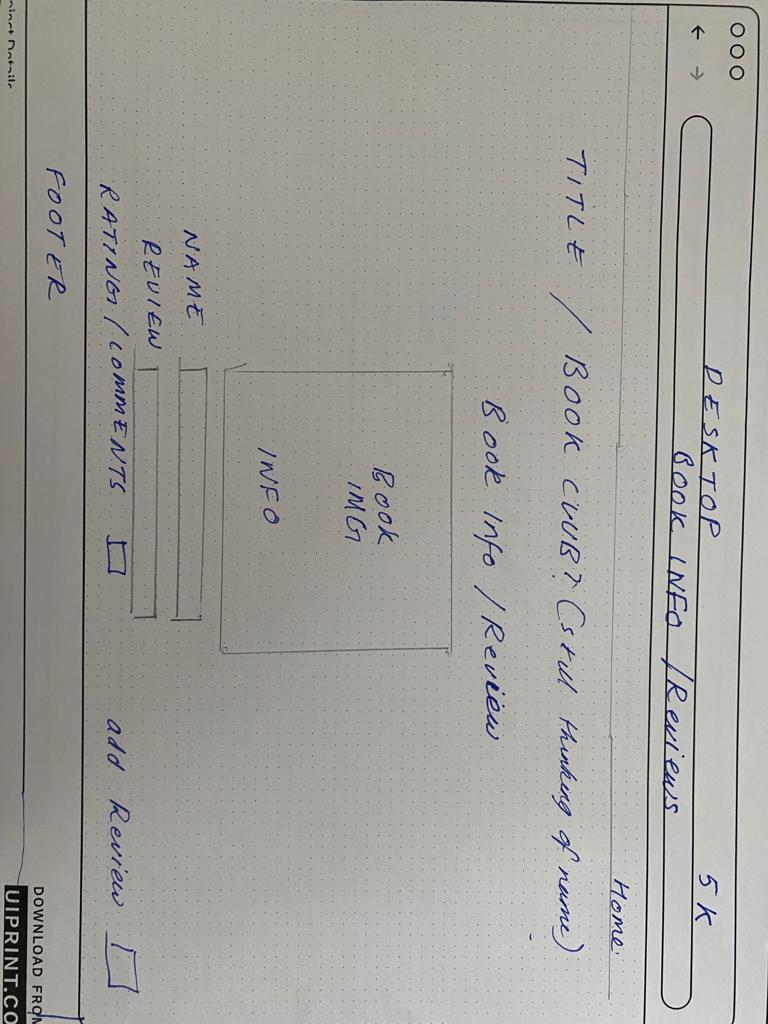 DESKTOP 5K
BOOK INFO / Reviews
Home
TITLE / BOOK CLUB? (still thinking of name)
Book Info / Review
BOOK
IMG
INFO
NAME
REVIEW
RATING / COMMENTS
add Review
FOOTER
DOWNLOAD FROM
UIPRINT.CO
Details